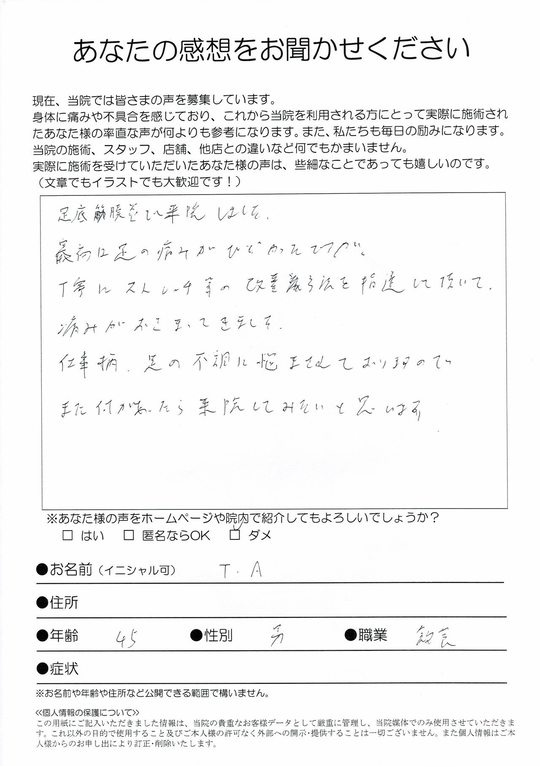 あなたの感想をお聞かせください
現在、当院では皆さまの声を募集しています。
身体に痛みや不具合を感じており、これから当院を利用される方にとって実際に施術され
たあなた様の率直な声が何よりも参考になります。また、私たちも毎日の励みになります。
当院の施術、スタッフ、店舗、他店との違いなど何でもかまいません。
実際に施術を受けていただいたあなた様の声は、些細なことであっても嬉しいのです。
（文章でもイラストでも大歓迎です！）
足底筋膜炎で来院しました。
最初は足の痛みがひどかったですが、
丁寧にストレッチ等の改善方法を指導して頂いて、
痛みがおさまってきました。
仕事柄、足の不調に悩まされておりますので
また何かあったら来院してみたいと思います
※あなた様の声をホームページや院内で紹介してもよろしいでしょうか？
□ はい □ 匿名ならOK □ ダメ
●お名前（イニシャル可） T.A
●住所
●年齢 45 ●性別 男 ●職業 教員
●症状
※お名前や年齢や住所など公開できる範囲で構いません。
≪個人情報の保護について≫
この用紙にご記入いただきました情報は、当院の貴重なお客様データとして厳重に管理し、当院媒体でのみ使用させていただきま
す。これ以外の目的で使用すること及びご本人様の許可なく外部への開示・提供することは一切ございません。また個人情報はご本
人様からのお申し出により訂正・削除いたします。